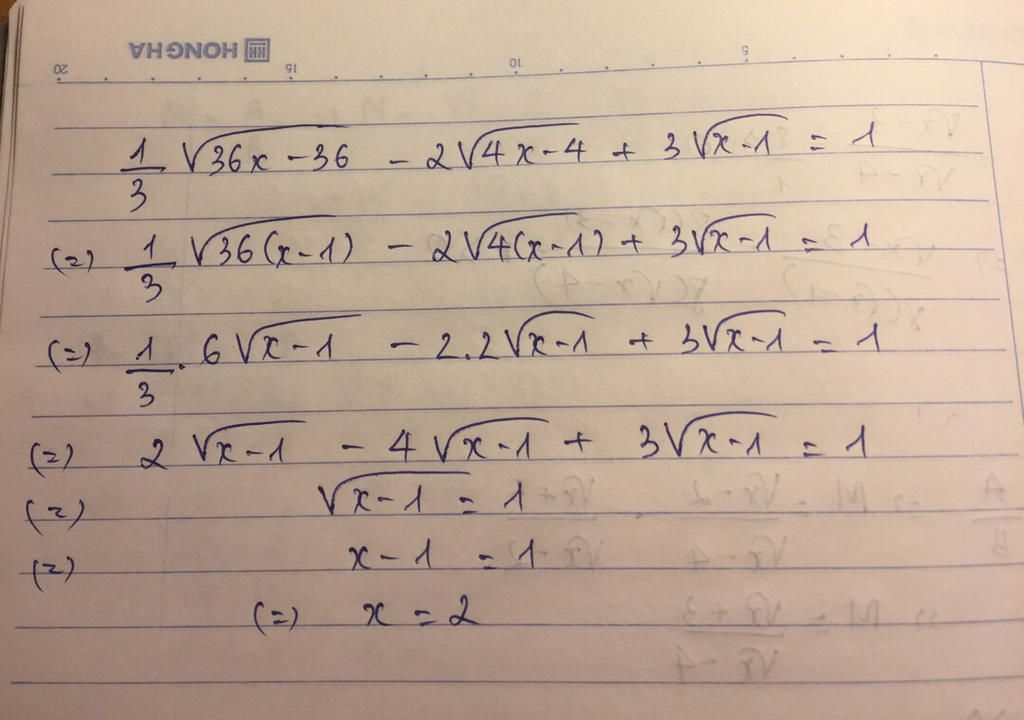 HONG HA
20 15 10 5
1/3 √(36x-36) - 2√(4x-4) + 3√(x-1) = 1
(=) 1/3 √(36(x-1)) - 2√(4(x-1)) + 3√(x-1) = 1
(=) 1/3 . 6√(x-1) - 2.2√(x-1) + 3√(x-1) = 1
(=) 2√(x-1) - 4√(x-1) + 3√(x-1) = 1
(=) √(x-1) = 1
(=) x-1 = 1
(=) x = 2